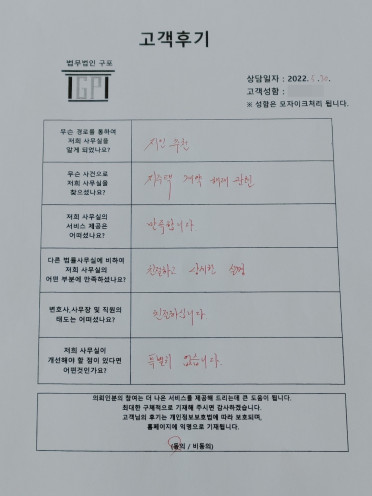 고객후기
법무법인 구포
GP
상담일자 : 2022. .30.
고객성함 :
※ 성함은 모자이크처리 됩니다.
무슨 경로를 통하여
저희 사무실을
알게 되었나요?
지인 추천
무슨 사건으로
저희 사무실을
찾으셨나요?
지주택 계약 해제 관련
저희 사무실의
서비스 제공은
어떠셨나요?
만족합니다
다른 법률사무실에 비하여
저희 사무실의
어떤 부분에 만족하셨나요?
친절하고 상세한 설명
변호사,사무장 및 직원의
태도는 어떠셨나요?
친절하십니다
저희 사무실이
개선해야 할 점이 있다면
어떤것인가요?
특별히 없습니다.
의뢰인분의 참여는 더 나은 서비스를 제공해 드리는데 큰 도움이 됩니다.
최대한 구체적으로 기재해 주시면 감사하겠습니다.
고객님의 후기는 개인정보보호법에 따라 보호되며,
홈페이지에 익명으로 기재됩니다.
(동의 / 비동의)